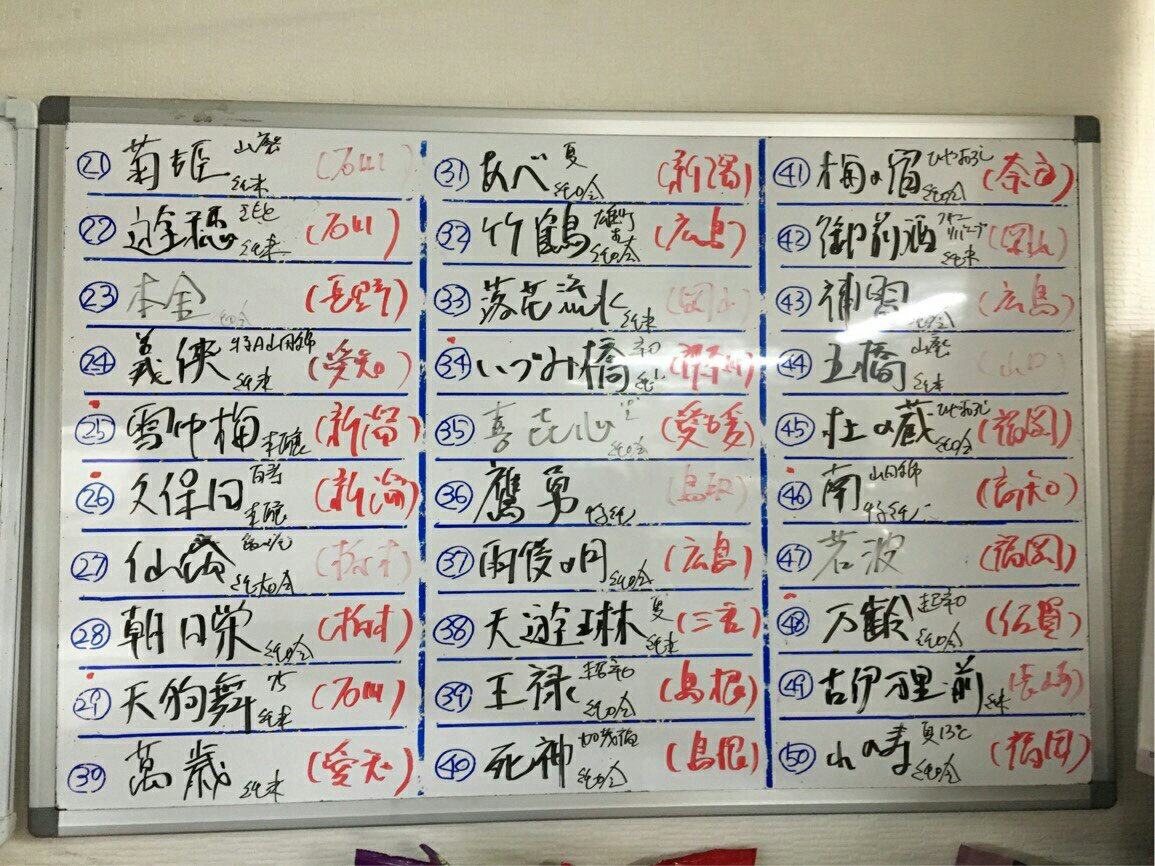 ㉑ 菊姫 山廃 純米 (石川)
㉒ 遊穂 純米 (石川)
㉓ 本金 純吟 (長野)
㉔ 義侠 特A山田錦 純米 (愛知)
㉕ 雪中梅 本醸 (新潟)
㉖ 久保田 百寿 本醸 (新潟)
㉗ 仙禽 純大吟 (栃木)
㉘ 朝日栄 純吟 (栃木)
㉙ 天狗舞 純米 (石川)
㊴ 萬歳 純米 (愛知)
㉛ あべ 夏 純吟 (新潟)
㉜ 竹鶴 雄町 純米 (広島)
㉝ 落花流水 純米 (岡山)
㉞ いづみ橋 辛口
㉟ 喜㐂心 純吟 (愛媛)
㊱ 鷹勇 特純 (鳥取)
㊲ 雨後の月 純吟 (広島)
㊳ 天遊琳 夏 純米 (三重)
㊴ 王禄 超辛口 純吟 (島根)
㊵ 死神 純吟 (島根)
㊶ 梅の宿 ひやおろし 純吟 (奈良)
㊷ 御前酒 純米 (岡山)
㊸ 補雷 純吟 (広島)
㊹ 五橋 山廃 純米 (山口)
㊺ 杜の蔵 ひやおろし 純吟 (福岡)
㊻ 南 山田錦 特純 (高知)
㊼ 若波 (福岡)
㊽ 万齢 超辛口 純吟 (佐賀)
㊾ 古伊万里前 純米 (長崎)
㊿ 山の寿 夏13℃ 純吟 (福岡)